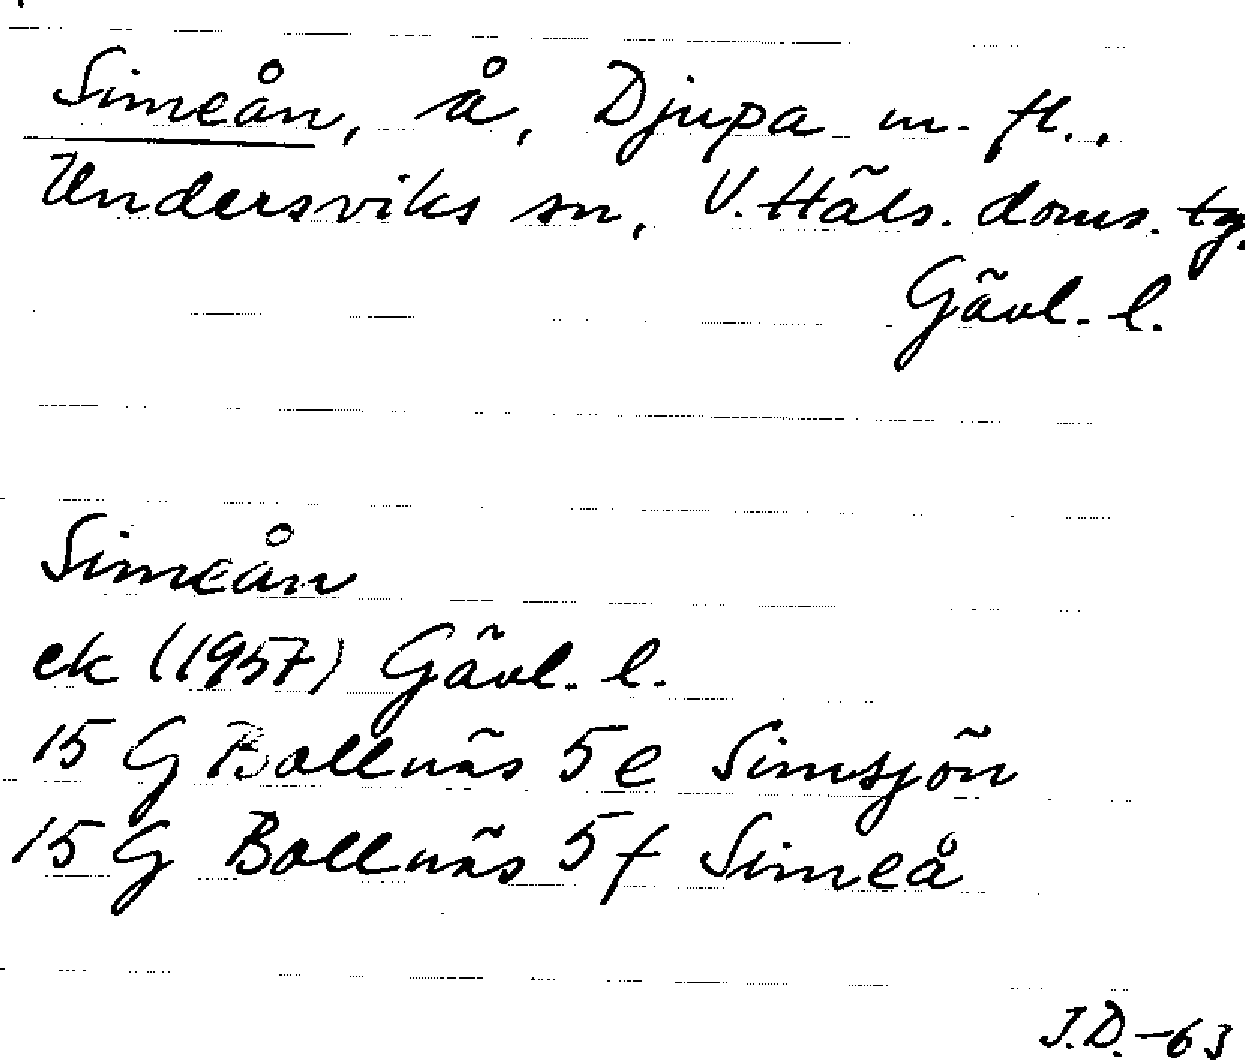 Simeån, å, Djupa m. fl.,
Undersviks sn, V. Häls. doms. tg.
Gävl. l.
Simeån
ek (1957) Gävl. l.
15 G Bollnäs 5 e Simsjön
15 G Bollnäs 5 f Simeå
J.D. -63